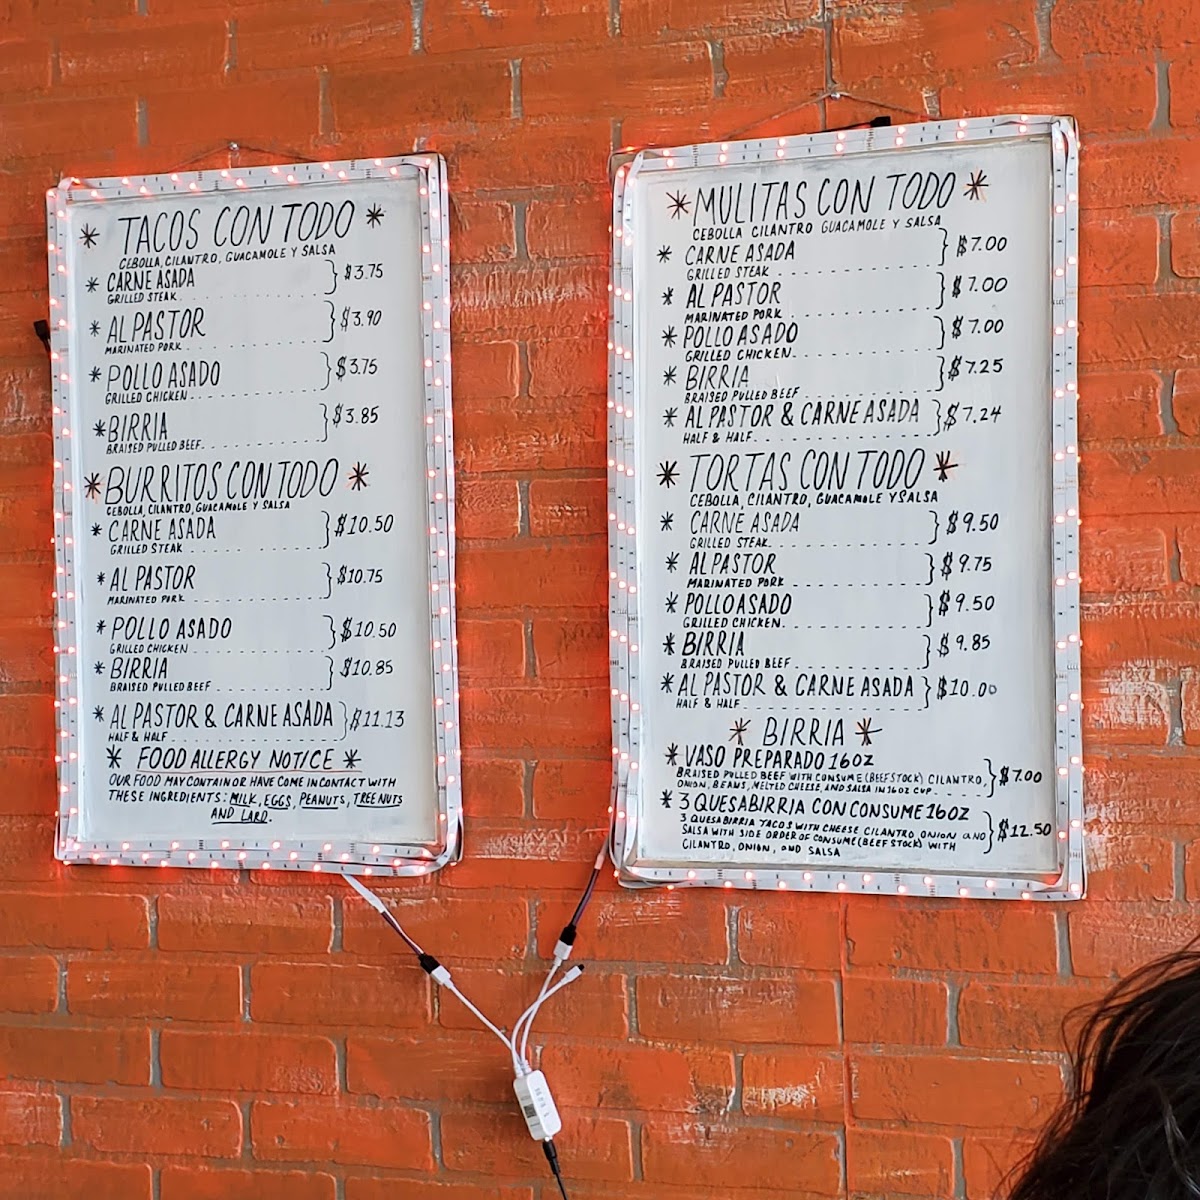 * TACOS CON TODO *
CEBOLLA, CILANTRO, GUACAMOLE Y SALSA
* CARNE ASADA } $3.75
GRILLED STEAK
* AL PASTOR } $3.90
MARINATED PORK
* POLLO ASADO } $3.75
GRILLED CHICKEN
* BIRRIA } $3.85
BRAISED PULLED BEEF
* BURRITOS CON TODO *
CEBOLLA, CILANTRO, GUACAMOLE Y SALSA
* CARNE ASADA } $10.50
GRILLED STEAK
* AL PASTOR } $10.75
MARINATED PORK
* POLLO ASADO } $10.50
GRILLED CHICKEN
* BIRRIA } $10.85
BRAISED PULLED BEEF
* AL PASTOR & CARNE ASADA } $11.13
HALF & HALF
* FOOD ALLERGY NOTICE *
OUR FOOD MAY CONTAIN OR HAVE COME IN CONTACT WITH
THESE INGREDIENTS: MILK, EGGS, PEANUTS, TREE NUTS
AND LARD.
* MULITAS CON TODO *
CEBOLLA CILANTRO GUACAMOLE Y SALSA
* CARNE ASADA } $7.00
GRILLED STEAK
* AL PASTOR } $7.00
MARINATED PORK
* POLLO ASADO } $7.00
GRILLED CHICKEN
* BIRRIA } $7.25
BRAISED PULLED BEEF
* AL PASTOR & CARNE ASADA } $7.24
HALF & HALF
* TORTAS CON TODO *
CEBOLLA, CILANTRO, GUACAMOLE Y SALSA
* CARNE ASADA } $9.50
GRILLED STEAK
* AL PASTOR } $9.75
MARINATED PORK
* POLLO ASADO } $9.50
GRILLED CHICKEN
* BIRRIA } $9.85
BRAISED PULLED BEEF
* AL PASTOR & CARNE ASADA } $10.00
HALF & HALF
* BIRRIA *
* VASO PREPARADO 16OZ } $7.00
BRAISED PULLED BEEF WITH CONSUME (BEEF STOCK) CILANTRO,
ONION, BEANS, MELTED CHEESE, AND SALSA IN 16OZ CUP
* 3 QUESABIRRIA CON CONSUME 16OZ
3 QUESABIRRIA TACOS WITH CHEESE CILANTRO, ONION AND } $12.50
SALSA WITH SIDE ORDER OF CONSUME (BEEF STOCK) WITH
CILANTRO, ONION, AND SALSA